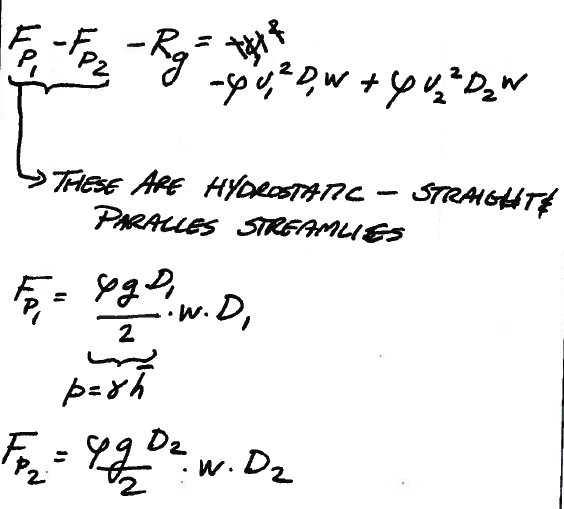 F_P₁ - F_P₂ - R_g =
-φ v₁² D₁ w + φ v₂² D₂ w
→ THESE ARE HYDROSTATIC – STRAIGHT &
PARALLES STREAMLIES
F_P₁ = φ g D₁ / 2 · w · D₁
p = γ h̄
F_P₂ = φ g D₂ / 2 · w · D₂